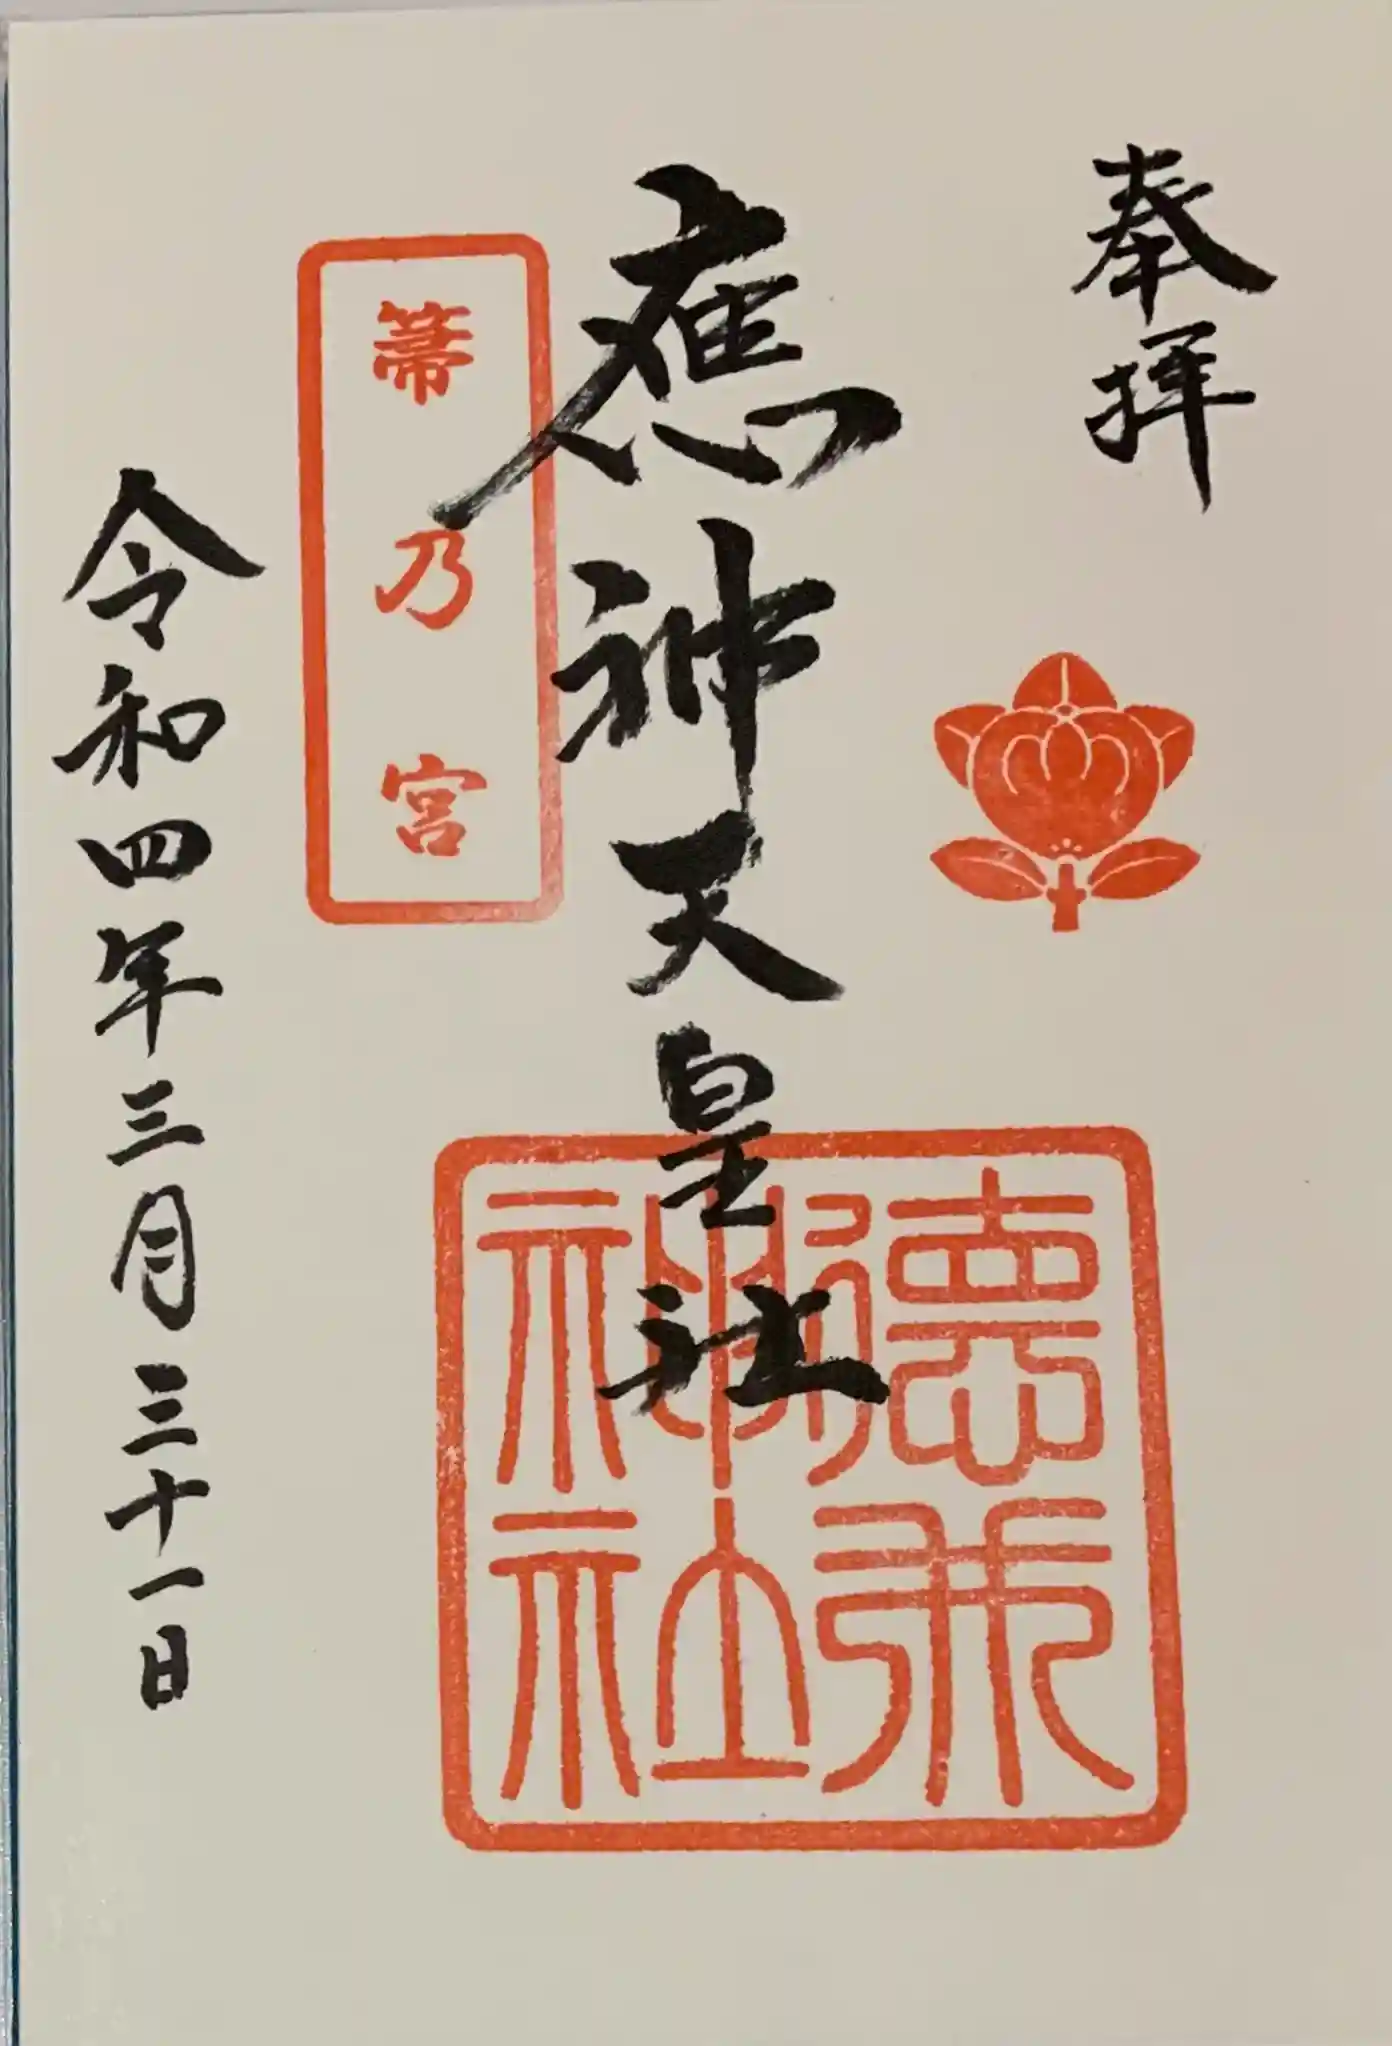 奉拝
應神天皇社
箒乃宮
德井神社
令和四年三月三十一日